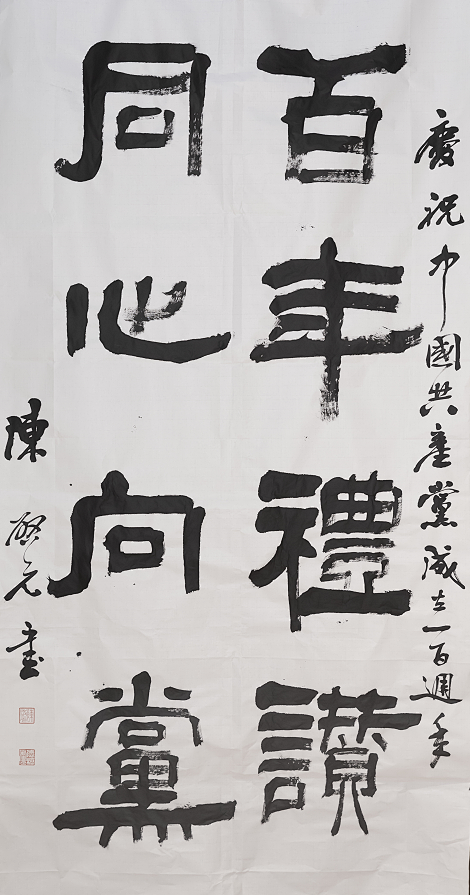 慶祝中國共產黨成立一百週年
百年禮讃
同心向黨
陳啟元書